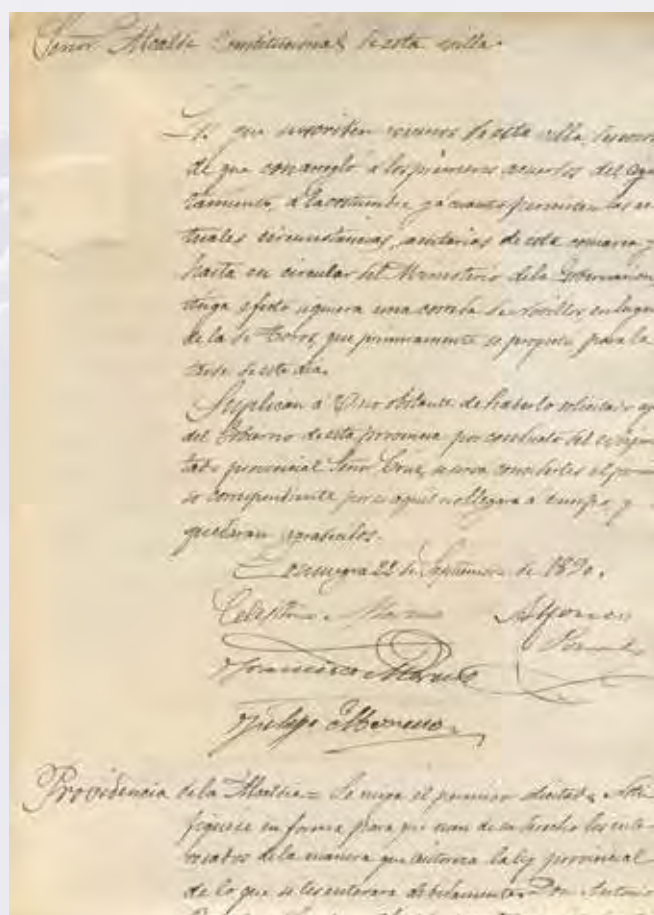 Señor Alcalde Constitucional de esta villa.
Los que suscriben vecinos de esta villa, deseosos
de que con arreglo á los primeros acuerdos del Ayun
tamiento, á la costumbre y á cuanto permiten las ac
tuales circunstancias sanitarias de esta comarca y
hasta en circular del Ministerio de la Gobernacion,
tenga efecto siquiera una corrida de novillos, en lugar
de la de Toros, que primeramente se propuso, para la
tarde de este dia.
Suplican á V. no obstante de haberlo solicitado
del Gobierno de esta provincia por conducto del
tado provincial Señor Cruz, se sirva concederles el permi
so correspondiente por si aquel no llegara a tiempo, y
quedaran agradecidos.
Consuegra 22 de Septiembre de 1890.
Celestino Moreno Alfonso
Francisco Moreno
Felipe Moreno
Providencia de la Alcaldia = Se niega el permiso solicitado. Noti
fiquese en forma para que usen de su derecho los inte
resados de la manera que autoriza la ley provincial
de lo que se les enterara debidamente. Don Antonio